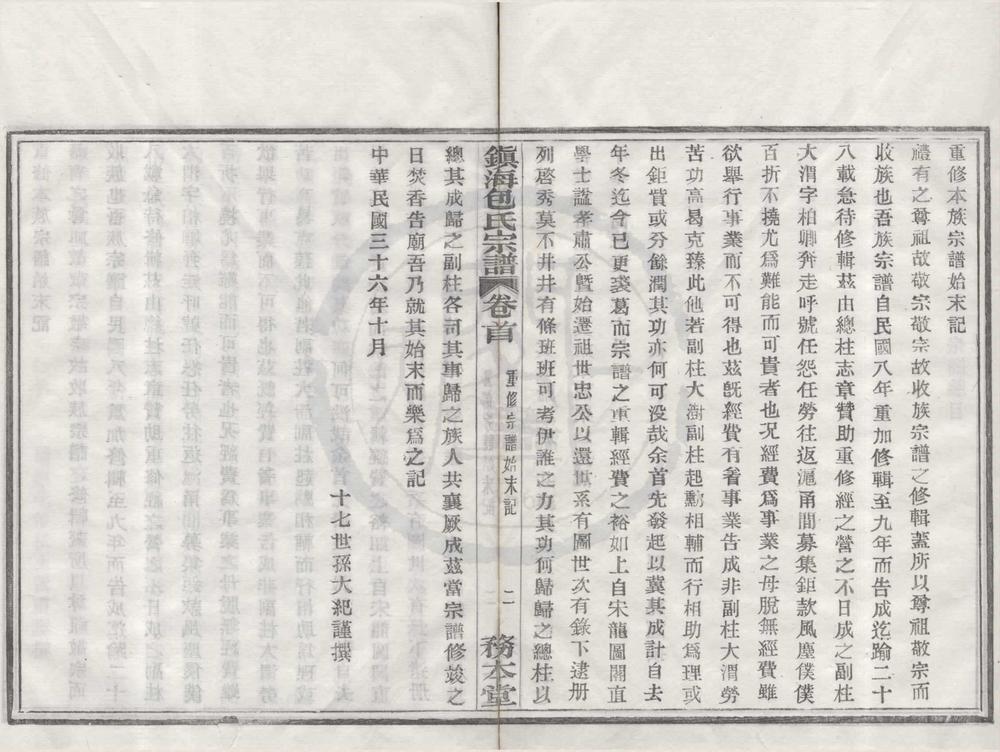 重修本族宗譜始末記
禮有之尊祖故敬宗敬宗故收族宗譜之修輯蓋所以尊祖敬宗而
收族也吾族宗譜自民國八年重加修輯至九年而告成迄踰二十
八載急待修輯茲由總柱志章贊助重修經之營之不日成之副柱
大渭字柏卿奔走呼號任怨任勞往返滬甬間募集鉅款風塵僕僕
百折不撓尤爲難能而可貴者也況經費爲事業之母脫無經費雖
欲舉行事業而不可得也茲旣經費有着事業告成非副柱大渭勞
苦功高曷克臻此他若副柱大澍副柱起勳相輔而行相助爲理或
出鉅貲或分餘潤其功亦何可没哉余首先發起以冀其成計自去
年冬迄今已更裘葛而宗譜之重輯經費之裕如上自宋龍圖閣直
學士諡孝肅公曁始遷祖世忠公以還世系有圖世次有錄下逮册
列啓秀莫不井井有條班班可考伊誰之力其功何歸歸之總柱以
鎮海包氏宗譜 卷首 重修宗譜始末記 二 務本堂
總其成歸之副柱各司其事歸之族人共襄厥成茲當宗譜修竣之
日焚香告廟吾乃就其始末而樂爲之記
中華民國三十六年十月 十七世孫大紀謹撰